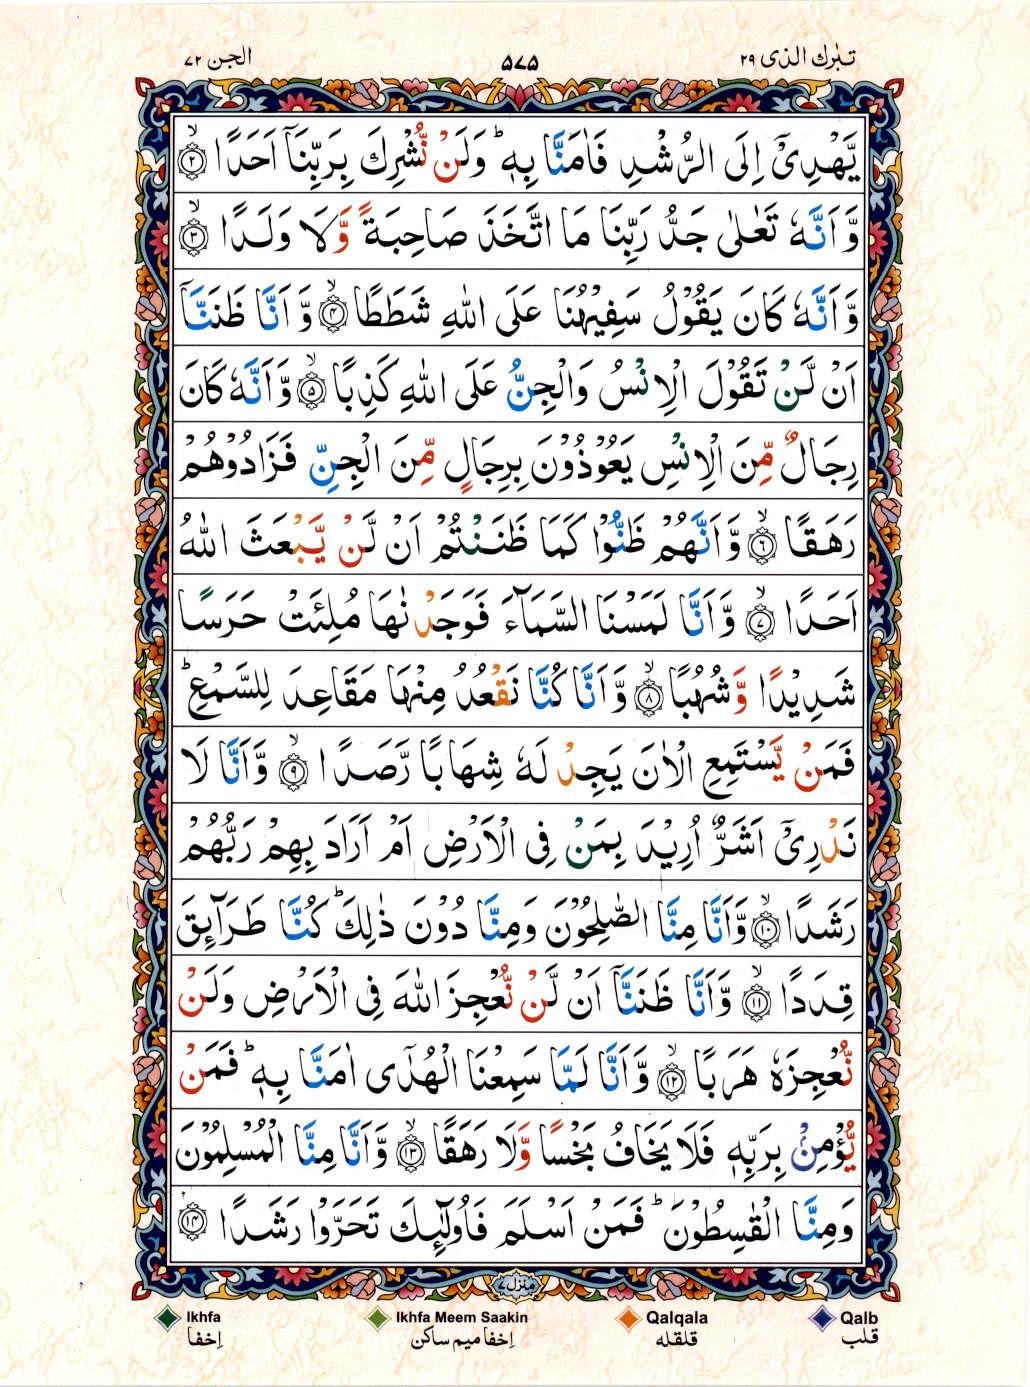 تبٰرك الذى ٢٩
۵۷۵
الجن ٧٢
يَّهْدِىْٓ اِلَى الرُّشْدِ فَاٰمَنَّا بِهٖ ؕ وَلَنْ نُّشْرِكَ بِرَبِّنَآ اَحَدًا ۙ﴿۲﴾
وَّاَنَّهٗ تَعٰلٰى جَدُّ رَبِّنَا مَا اتَّخَذَ صَاحِبَةً وَّلَا وَلَدًا ۙ﴿۳﴾
وَّاَنَّهٗ كَانَ يَقُوْلُ سَفِيْهُنَا عَلَى اللّٰهِ شَطَطًا ۙ﴿۴﴾ وَّاَنَّا ظَنَنَّآ
اَنْ لَّنْ تَقُوْلَ الْاِنْسُ وَالْجِنُّ عَلَى اللّٰهِ كَذِبًا ۙ﴿۵﴾ وَّاَنَّهٗ كَانَ
رِجَالٌ مِّنَ الْاِنْسِ يَعُوْذُوْنَ بِرِجَالٍ مِّنَ الْجِنِّ فَزَادُوْهُمْ
رَهَقًا ۙ﴿۶﴾ وَّاَنَّهُمْ ظَنُّوْا كَمَا ظَنَنْتُمْ اَنْ لَّنْ يَّبْعَثَ اللّٰهُ
اَحَدًا ۙ﴿۷﴾ وَّاَنَّا لَمَسْنَا السَّمَآءَ فَوَجَدْنٰهَا مُلِئَتْ حَرَسًا
شَدِيْدًا وَّشُهُبًا ۙ﴿۸﴾ وَّاَنَّا كُنَّا نَقْعُدُ مِنْهَا مَقَاعِدَ لِلسَّمْعِ ؕ
فَمَنْ يَّسْتَمِعِ الْاٰنَ يَجِدْ لَهٗ شِهَابًا رَّصَدًا ۙ﴿۹﴾ وَّاَنَّا لَا
نَدْرِىْٓ اَشَرٌّ اُرِيْدَ بِمَنْ فِى الْاَرْضِ اَمْ اَرَادَ بِهِمْ رَبُّهُمْ
رَشَدًا ۙ﴿۱۰﴾ وَّاَنَّا مِنَّا الصّٰلِحُوْنَ وَمِنَّا دُوْنَ ذٰلِكَ ؕ كُنَّا طَرَآئِقَ
قِدَدًا ۙ﴿۱۱﴾ وَّاَنَّا ظَنَنَّآ اَنْ لَّنْ نُّعْجِزَ اللّٰهَ فِى الْاَرْضِ وَلَنْ
نُّعْجِزَهٗ هَرَبًا ۙ﴿۱۲﴾ وَّاَنَّا لَمَّا سَمِعْنَا الْهُدٰٓى اٰمَنَّا بِهٖ ؕ فَمَنْ
يُّؤْمِنْۢ بِرَبِّهٖ فَلَا يَخَافُ بَخْسًا وَّلَا رَهَقًا ۙ﴿۱۳﴾ وَّاَنَّا مِنَّا الْمُسْلِمُوْنَ
وَمِنَّا الْقٰسِطُوْنَ ؕ فَمَنْ اَسْلَمَ فَاُولٰٓئِكَ تَحَرَّوْا رَشَدًا ﴿۱۴﴾
منزل ۷
Ikhfa Ikhfa Meem Saakin Qalqala Qalb
اِخفا اِخفا میم ساکن قلقله قلب